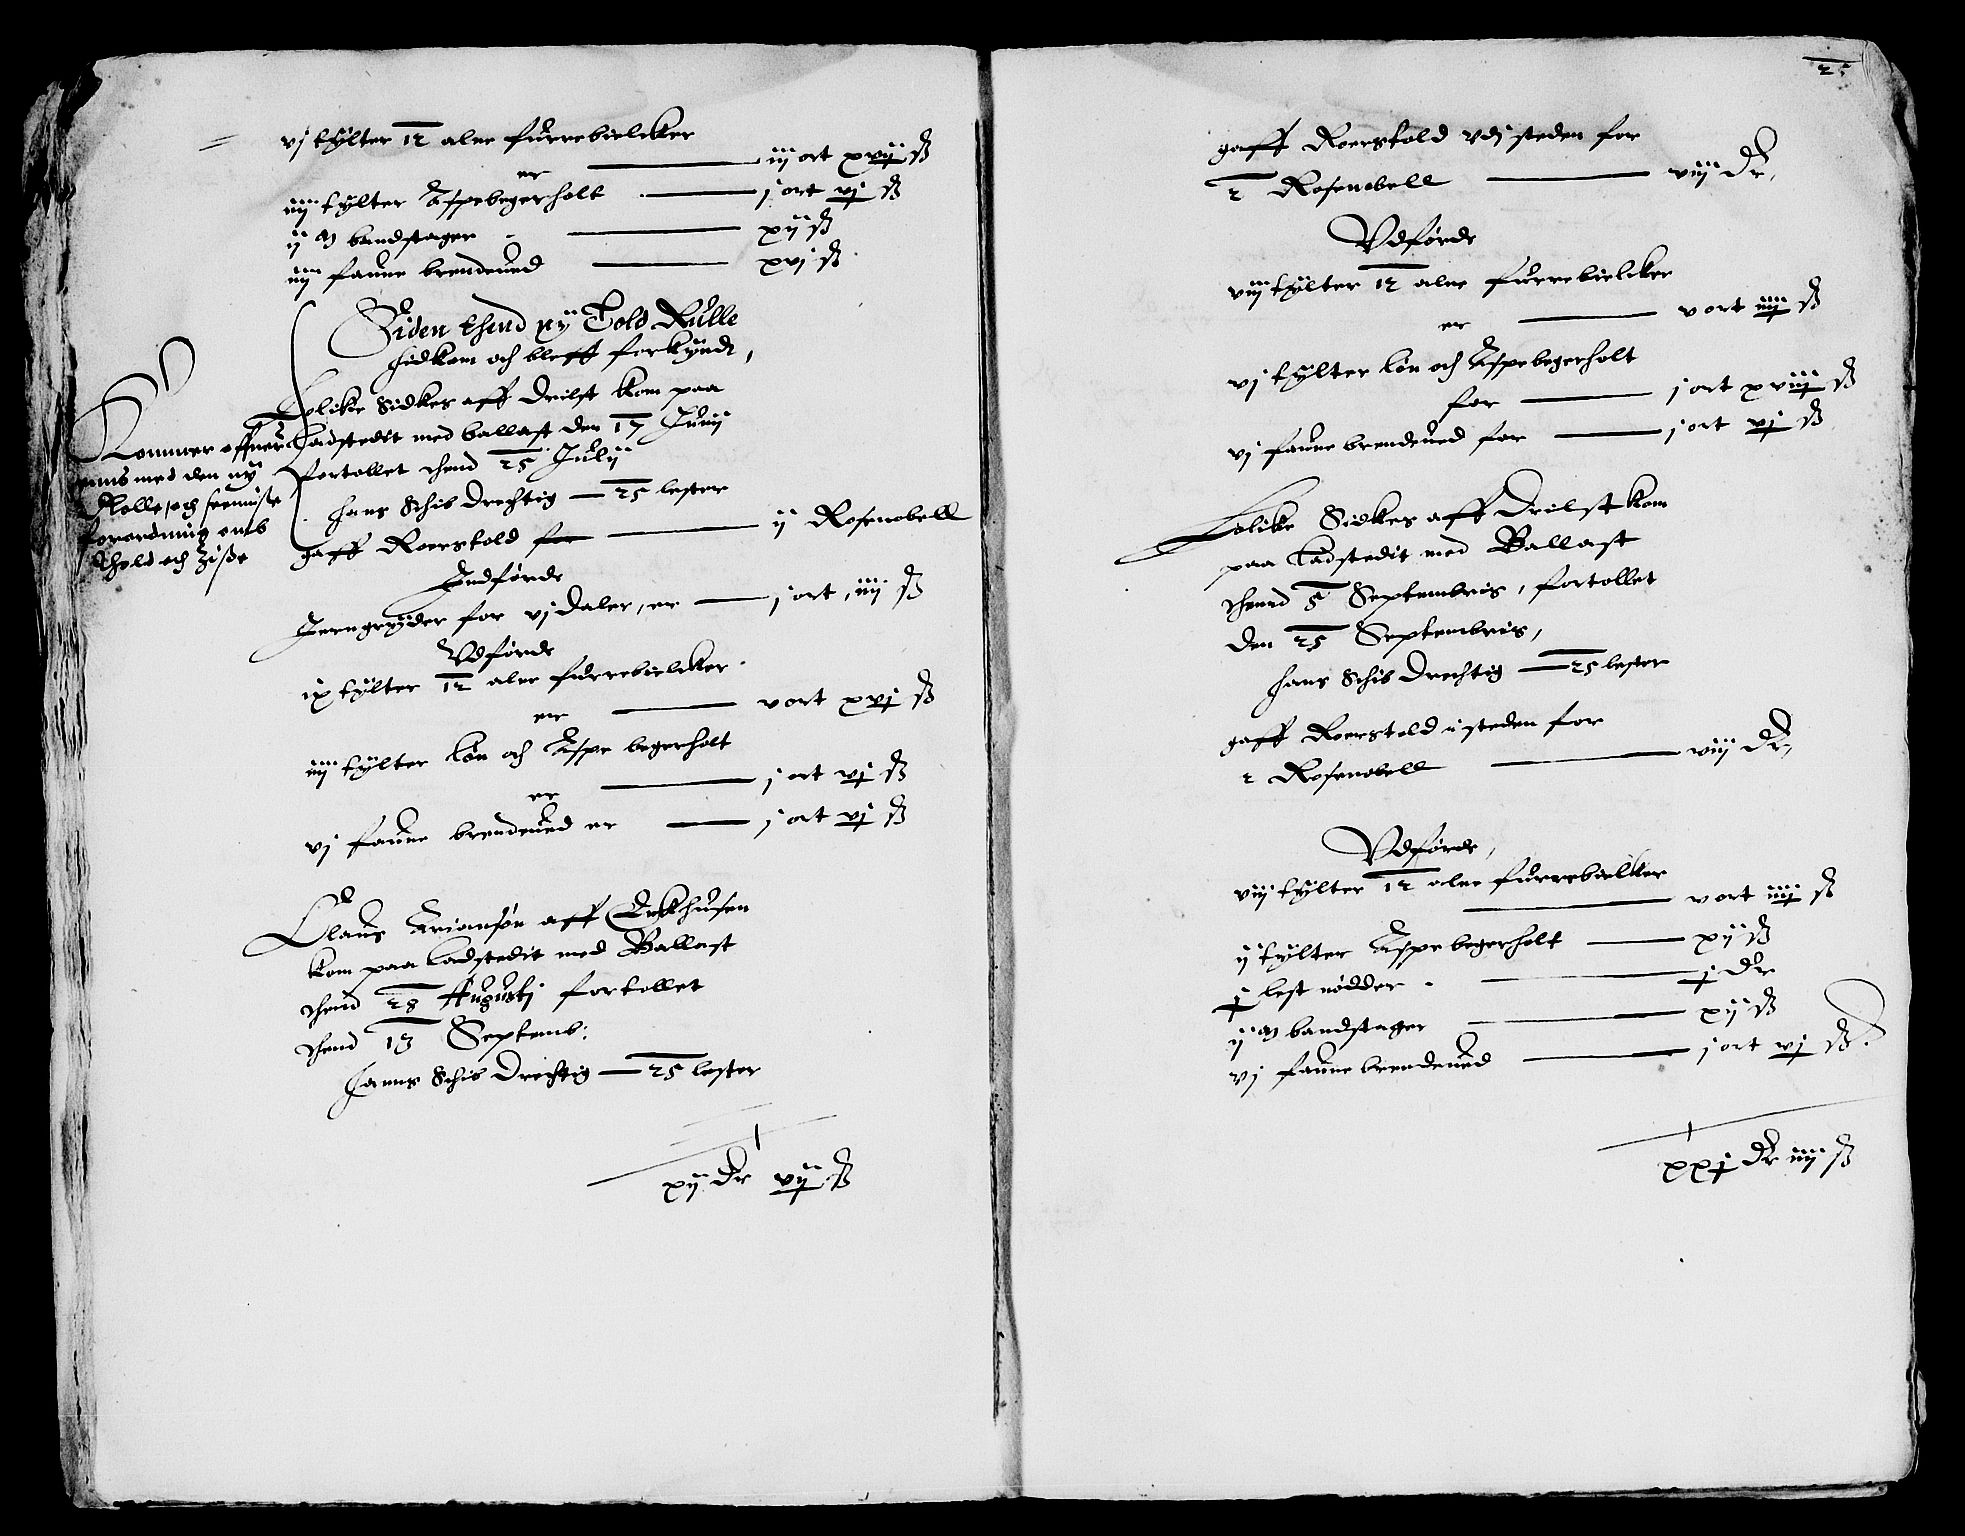 vj tylter 12 alne furrebielcker
er — iij ort xvij ß
iiij tylter Aspebegerholt — j ort vj ß
ij M bandstager — xij ß
iiij faune brendeued — xvj ß
Siden thend ny Told Rulle
hidkom och bleff forkyndt,
Lolike Sidkes aff Drilst kom paa
Ladstedit med ballast den 17 Junij
fortollet thend 25 Julij
hans Schib Drechtig — 25 lester
gaff Roerstold for — ij Rosenobell
Kommer offuer
eens med den ny
Rolle, och seeniste
forordning omb
thold och Zise
Indførde
Jerngryder for vj daler, er — j ort, iiij ß
Vdførde
ix tylter 12 alne furrebielcker
er — v ort xvj ß
iiij tylter løn och Aspe begerholt
er — j ort vj ß
vj faune brendeued er — j ort vj ß
Claus Ariansøn aff Enkhusen
kom paa Ladstedit med Ballast
thend 28 Augusti fortollet
thend 13 Septemb:
Hanns Schib Drechtig — 25 lester
xij dr vij ß
25
gaff Roerstold vdj steden for
2 Rosenobell — viij Dr,
Vdførde
viij tylter 12 alne furrebielcker
er — v ort iiij ß
vj tylter løn och Aspebegerholt
for — j ort xviij ß
vj faune brendeued for — j ort vj ß
Lolike Sidkes aff Drilst kom
paa Ladstedit med Ballast
thennd 5 Septembris, fortollet
den 25 Septembris,
hans Schib Drechtig — 25 lester
gaff Roerstold i steden for
2 Rosenobell — viij Dr,
Vdførde,
viij tylter 12 alne furrebielcker
— v ort iiij ß
ij tylter Aspebegerholt — xij ß
j lest nødder — j Dr
ij M bandstager — xij ß
vj faune brendeued — j ort vj ß.
xxj dr iiij ß